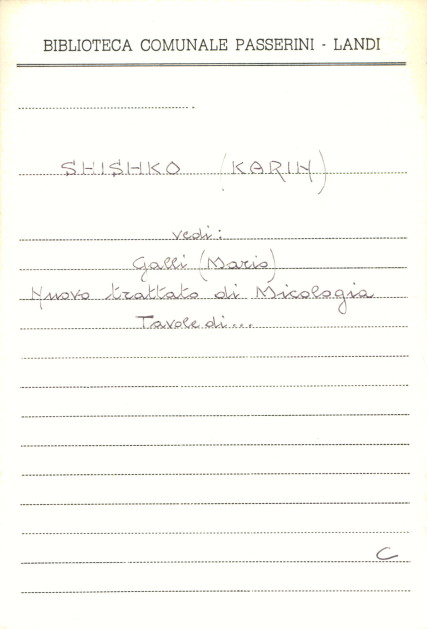 BIBLIOTECA COMUNALE PASSERINI - LANDI
SHISHKO (KARIN)
vedi:
Galli (Mario)
Nuovo trattato di Micologia
Tavole di...
C